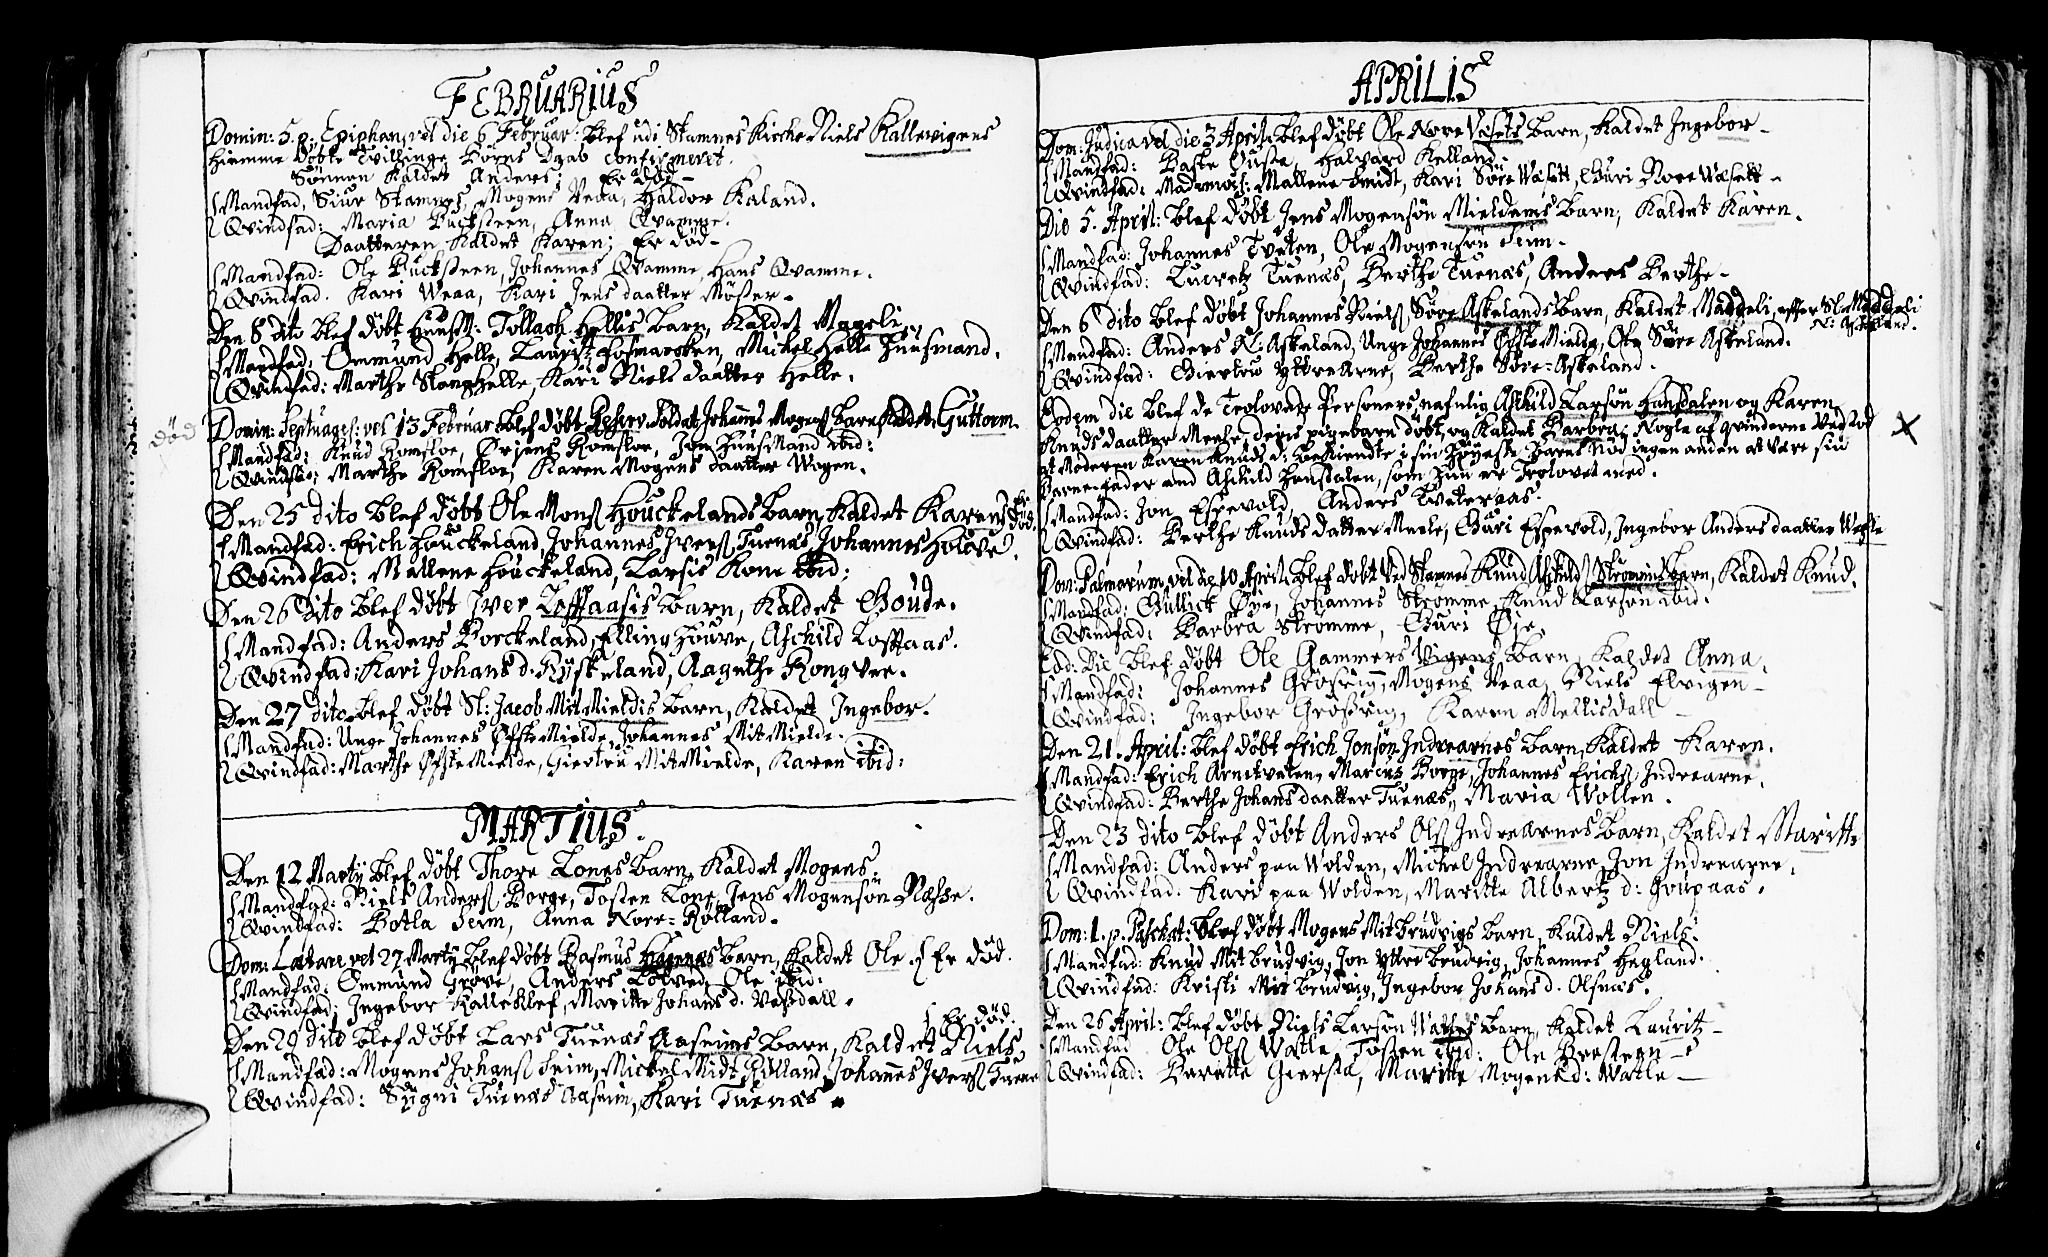 FEBRUARIUS
Domin: 5. p. Epiphan, vel die 6 Februar: blef udi Stamnes Kircke Niels Kallevigens
hiemme døbte Tvillinge Børns Daab confirmeret.
Sønnen kaldet Anders; Er død
Mandfad, Siur Stamnes, Mogens Veaa, Haldor Kaland.
Qvindfad: Maria Bucksteen, Anna Qvamme.
Daatteren kaldet Karen; Er død
Mandfad: Ole Bucksteen, Johannes Qvamme, Hans Qvamme.
Qvindfad. Kari Weaa, Kari Jens daatter Møster
Den 8 dito blef døbt Huusm: Tollach Hellis barn, kaldet Mageli.
Mandfad: Ommund Helle, Lauritz Fosmarcken, Mickel Helle Huusmand.
Qvindfad: Marthe Stanghelle, Kari Niels daatter Helle.
død
Domin: Septuages: vel 13 Februar blef døbt Reserv Soldat Johannis Mogens barn kaldet Guttorm
Mandfad: Knud Romsloe, Ørjens Romsloe, Jon Huusmand ibid:
Qvindfad: Marthe Romsloe, Karen Mogens daatter Wogen.
Den 25 dito blef døbt Ole Mons Houckelands barn, kaldet Karen Er død.
Mandfad: Erich Houckeland, Johannes Ivers Tuenæs, Johannes Holsøe.
Qvindfad: Mallene Houckeland, Larsis Kone ibid:
Den 26 dito blef døbt Iver Lofftaasis barn, kaldet Goude.
Mandfad: Anders Borckeland, Elling Houre, Aschild Lofftaas.
Qvindfad: Kari Johans d. Ryskeland, Aagathe Rongver.
Den 27 dito blef døbt Sl: Jacob Mit Mieldis barn, kaldet Ingebor.
Mandfad: Unge Johannes Øfste Mielde, Johannes Mit Mielde.
Qvindfad: Marthe Øfste Mielde, Giertru Mit Mielde, Karen ibid:
MARTIUS.
Den 12 Martij blef døbt Thore Lones barn, kaldet Mogens.
Mandfad: Niels Anders Borge, Tosten Lone, Jens Mogensøn Næsse.
Qvindfad: Botla Seim, Anna Nore-Rølland.
Dom: Lætare vel 27 Martij blef døbt Rasmus Hanenæs barn, kaldet Ole. Er død.
Mandfad: Emmund Grove, Anders Lølved, Ole ibid:
Qvindfad: Ingebor Kallekleef, Maritte Johans d. Vasdall.
Den 29 dito blef døbt Lars Tuenæs Aaseims barn, kaldet Niels Er død.
Mandfad: Mogens Johans Seim, Mickel Midt Rølland, Johannes Ivers Tuenæs
Qvindfad: Sygni Tuenæs Aaseim, Kari Tuenæs
APRILIS
Dom: Judica vel die 3 April: blef døbt Ole Nore Væsets barn, kaldet Ingebor
Mandfad: Halvard Helland.
Qvindfad: Mademois: Mallene Smidt, Kari Søre Wæsett, Guri Nore Wæsett
Die 5. April: blef døbt Jens Mogensøn Mieldems barn, kaldet Karen.
Mandfad: Johannes Tveten, Ole Mogensøn Seim.
Qvindfad: Lucretz Tuenæs, Berthe Tuenæs, Anders Berthe
Den 6 dito blef døbt Johannes Niels Søre Askelands barn, kaldet Maddeli, effter Sl. Maddeli
N: Askeland.
Mandfad: Anders N: Askeland, Unge Johannes Øfste Mielde, Ole Søre Askeland.
Qvindfad: Giertru Yttre Arne, Berthe Søre-Askeland.
Eodem die blef de Trolovede Personers, nafnlig Aschild Larsøn Hansdalen og Karen
Knuds daatter Meele, deris pigebarn døbt, og kaldet Barbra. Nogle af qvinderne Ved Tod
at Moderen Karen Knuds d: bekiendte i sin høyeste Barns Nød ingen anden at være sin
Barnefader end Aschild Hansdalen, som hun er Trolovet med.
Mandfad: Jon Espevold, Anders Tveteraas.
Qvindfad: Berthe Knuds datter Meele, Guri Espevold, Ingebor Anders daatter Watle
Dom: Palmarum, vel die 10 April: blef døbt ved Stamnes Knud Aschilds Strømmes barn, kaldet Knud.
Mandfad: Gullick Øye, Johannes Strømme, Knud Larsøn ibid.
Qvindfad: Barbra Strømme, Guri Øje
Eod: Die blef døbt Ole Gammers Vigens barn, kaldet Anna.
Mandfad: Johannes Grosvig, Mogens Veaa, Niels Elvigen
Qvindfad: Ingebor Grosvig, Karen Mellisdall
Den 21. April: blef døbt Erich Jonsøn Indrearnes barn, kaldet Karen.
Mandfad: Erich Arnetveten, Marcus Borge, Johannes Erichs Indrearne.
Qvindfad: Berthe Johans daatter Tuenæs, Maria Wollen.
Den 23 dito blef døbt Anders Ols Indrearnes barn, kaldet Maritte
Mandfad: Anders paa Wolden, Mickel Indrearne, Jon Indrearne.
Qvindfad: Kari paa Wolden, Maritte Albertz d: Goupaas.
Dom: 1. p. Paschat: blef døbt Mogens Mit Brudvigs barn, kaldet Niels.
Mandfad: Knud Mit Brudvig, Jon Yttre Brudvig, Johannes Hegland.
Qvindfad: Kristi Mit Brudvig, Ingebor Johans d. Olsnæs.
Den 26 April: blef døbt Niels Larsøn Watles barn, kaldet Lauritz
Mandfad Ole Ols Watle, Tosten ibid: Ole Bresteen
Qvindfad: Beritte Giersta, Maritte Mogens d: Watle